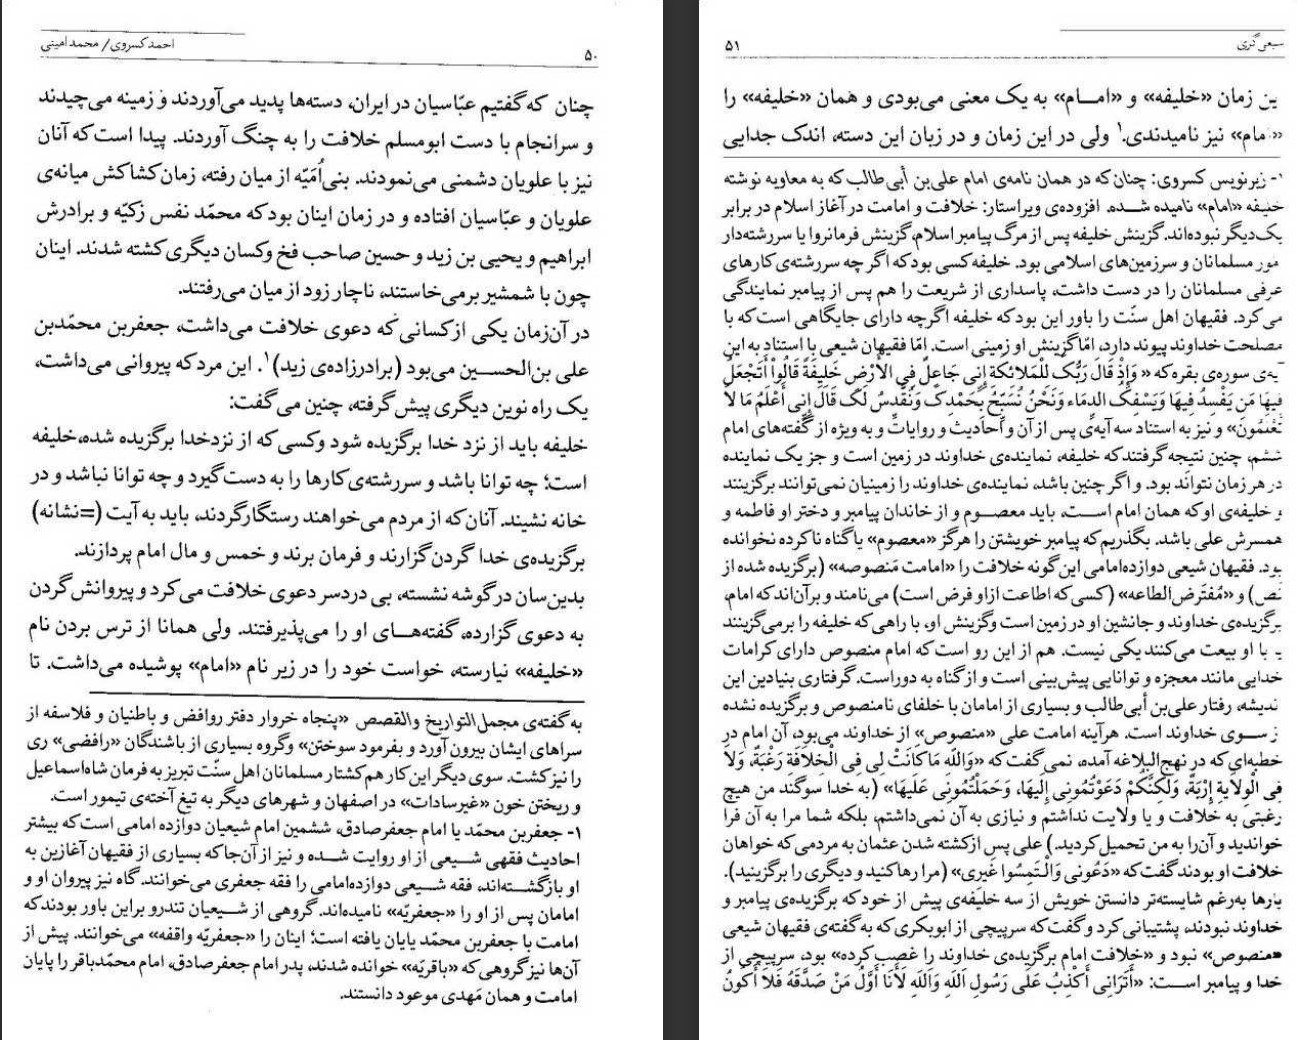 احمد کسروی/ محمد امینی
۵۰
چنان که گفتیم عبّاسیان در ایران، دسته‌ها پدید می‌آوردند و زمینه می‌چیدند
و سرانجام با دست ابومسلم خلافت را به چنگ آوردند. پیدا است که آنان
نیز با علویان دشمنی می‌نمودند. بنی‌اُمَیّه از میان رفته، زمان کشاکش میانه‌ی
علویان و عبّاسیان افتاده و در زمان اینان بود که محمّد نفس زکیّه و برادرش
ابراهیم و یحیی بن زید و حسین صاحب فخ و کسان دیگری کشته شدند. اینان
چون با شمشیر برمی‌خاستند، ناچار زود از میان می‌رفتند.
در آن‌زمان یکی از کسانی که دعوی خلافت می‌داشت، جعفربن محمّدبن
علی بن‌الحسـین می‌بود (برادرزاده‌ی زید)۱. این مرد که پیروانی می‌داشت،
یک راه نوین دیگری پیش گرفته، چنین می‌گفت:
خلیفه باید از نزد خدا برگزیده شود و کسی که از نزد خدا برگزیده شده، خلیفه
است؛ چه توانا باشد و سررشته‌ی کارها را به دست گیرد و چه توانا نباشد و در
خانه نشیند. آنان که از مردم می‌خواهند رستگار گردند، باید به آیت (=نشانه)
برگزیده‌ی خدا گردن گزارند و فرمان برند و خمس و مال امام پردازند.
بدین‌سان در گوشه نشسته، بی دردسر دعوی خلافت می‌کرد و پیروانش گردن
به دعوی گزارده، گفته‌هـای او را می‌پذیرفتند. ولی همانا از ترس بردن نام
«خلیفه» نیارسته، خواست خود را در زیر نام «امام» پوشیده می‌داشت. تا
به گفته‌ی مجمل‌التواریخ والقصص «پنجاه خروار دفتر روافض و باطنیان و فلاسفه از
سراهای ایشان بیرون آورد و بفرمود سوختن» و گروه بسیاری از باشندگان «رافضی» ری
را نیز کشت. سوی دیگر این کار هم کشتار مسلمانان اهل سنّت تبریز به فرمان شاه‌اسماعیل
و ریختن خون «غیرسادات» در اصفهان و شهرهای دیگر به تیغ آخته‌ی تیمور است.
۱- جعفربن محمّد یا امام جعفرصادق، ششمین امام شیعیان دوازده امامی است که بیشتر
احادیث فقهی شـیعی از او روایت شـده و نیز از آن‌جا که بسیاری از فقیهان آغازین به
او بازگشـته‌اند، فقه شـیعی دوازده‌امامی را فقه جعفری می‌خوانند. گاه نیز پیروان او و
امامان پس از او را «جعفریّه» نامیده‌اند. گروهی از شـیعیان تندرو براین باور بودند که
امامت با جعفربن محمّد پایان یافته است؛ اینان را «جعفریّه واقفه» می‌خوانند. پیش از
آن‌ها نیز گروهی که «باقریّه» خوانده شدند، پدر امام جعفرصادق، امام محمّدباقر را پایان
امامت و همان مَهدی موعود دانستند.
۵۱
ین زمان «خلیفه» و «امـام» به یک معنی می‌بودی و همان «خلیفه» را
«امام» نیز نامیدندی.۱ ولی در این زمان و در زبان این دسته، اندک جدایی
۱- زیرنویس کسروی: چنان که در همان نامه‌ی امام علی‌بن أبی‌طالب که به معاویه نوشته
خلیفه «امام» نامیده شـده. افزوده‌ی ویراستار: خلافت و امامت در آغاز اسلام در برابر
یک‌دیگر نبوده‌اند. گزینش خلیفه پس از مرگ پیامبر اسلام، گزینش فرمانروا یا سررشته‌دار
مور مسلمانان و سرزمین‌های اسلامی بود. خلیفه کسی بود که اگر چه سررشته‌ی کارهای
عرفی مسلمانان را در دست داشت، پاسداری از شریعت را هم پس از پیامبر نمایندگی
می‌کرد. فقیهان اهل سنّت را باور این بود که خلیفه اگرچه دارای جایگاهی است که با
مصلحت خداوند پیوند دارد، امّا گزینش او زمینی است. امّا فقیهان شیعی با استناد به این
آیه‌ی سوره‌ی بقره که « وَإِذْ قَالَ رَبُّک لِلْمَلَائِکَةِ إِنِی جَاعِلٌ فِی الْأَرْضِ خَلِیفَةً قَالُواْ أَتَجْعَلُ
فِیهَا مَن یُفْسِدُ فِیهَا وَیَسْفِکُ الدِمَاء وَنَحْنُ نُسَبِّحُ بِحَمْدِکَ وَنُقَدِسُ لَکَ قَالَ إِنِی أَعْلَمُ مَا لاَ
تَعْلَمُونَ» و نیز به استناد سه آیه‌ی پس از آن و أحادیث و روایات و به ویژه از گفته‌های امام
ششم، چنین نتیجه گرفتند که خلیفه، نماینده‌ی خداوند در زمین است و جز یک نماینده
در هر زمان نتواند بود. و اگر چنین باشد، نماینده‌ی خداوند را زمینیان نمی‌توانند برگزینند
و خلیفه‌ی او که همان امام اسـت، باید معصـوم و از خاندان پیامبر و دختر او فاطمه و
همسرش علی باشد. بگذریم که پیامبر خویشتن را هرگز «معصوم» یا گناه ناکرده نخوانده
بود. فقیهان شیعی دوازده‌امامی این گونه خلافت را «امامت مَنصوصه» (برگزیده شده از
نَص) و «مُفتَرض‌الطاعه» (کسی که اطاعت از او فرض است) می‌نامند و برآن‌اند که امام،
برگزیده‌ی خداوند و جانشین او در زمین است و گزینش او، با راهی که خلیفه را برمی‌گزینند
با او بیعت می‌کنند یکی نیست. هم از این رو است که امام منصوص دارای کرامات
خدایی مانند معجزه و توانایی پیش‌بینی است و از گناه به دور است. گرفتاری بنیادین این
ندیشه، رفتار علی‌بن أبی‌طالب و بسیاری از امامان با خلفای نامنصوص و برگزیده نشده
ز سـوی خداوند است. هرآینه امامت علی «منصوص» از خداوند می‌بود، آن امام در
خطبه‌ای که در نهج‌البلاغه آمده، نمی‌گفت که «وَاللّهِ مَا کَانَتْ لِی فِی الْخِلَافَةِ رَغْبَةٌ، وَلَا
فِی الْوِلَایةِ إِرْبَةٌ، وَلَکِنَّکُمْ دَعَوْتُمُونِی إِلَیهَا، وَحَمَلْتُمُونِی عَلَیهَا» (به خدا سوگند من هیچ
رغبتی به خلافت و یا ولایت نداشتم و نیازی به آن نمی‌داشتم، بلکه شما مرا به آن فرا
خواندید و آن را به من تحمیل کردید.) علی پس از کشته شدن عثمان به مردمی که خواهان
خلافت او بودند گفت که «دَعُونی وَالْتَمِسُوا غَیری» (مرا رها کنید و دیگری را برگزینید).
بارها به‌رغم شایسته‌تر دانستن خویش از سه خلیفه‌ی پیش از خود که برگزیده‌ی پیامبر و
خداوند نبودند، پشتیبانی کرد و گفت که سرپیچی از ابوبکری که به گفته‌ی فقیهان شیعی
«منصوص» نبود و «خلافت امام برگزیده‌ی خداوند را غصب کرده» بود، سرپیچی از
خدا و پیامبر اسـت: «أَتَرَانِی أَکْذِبُ عَلَی رَسُولِ اللّهِ وَاللّهِ لَأَنَا أَوَّلُ مَنْ صَدَّقَهُ فَلَا أَکُونُ